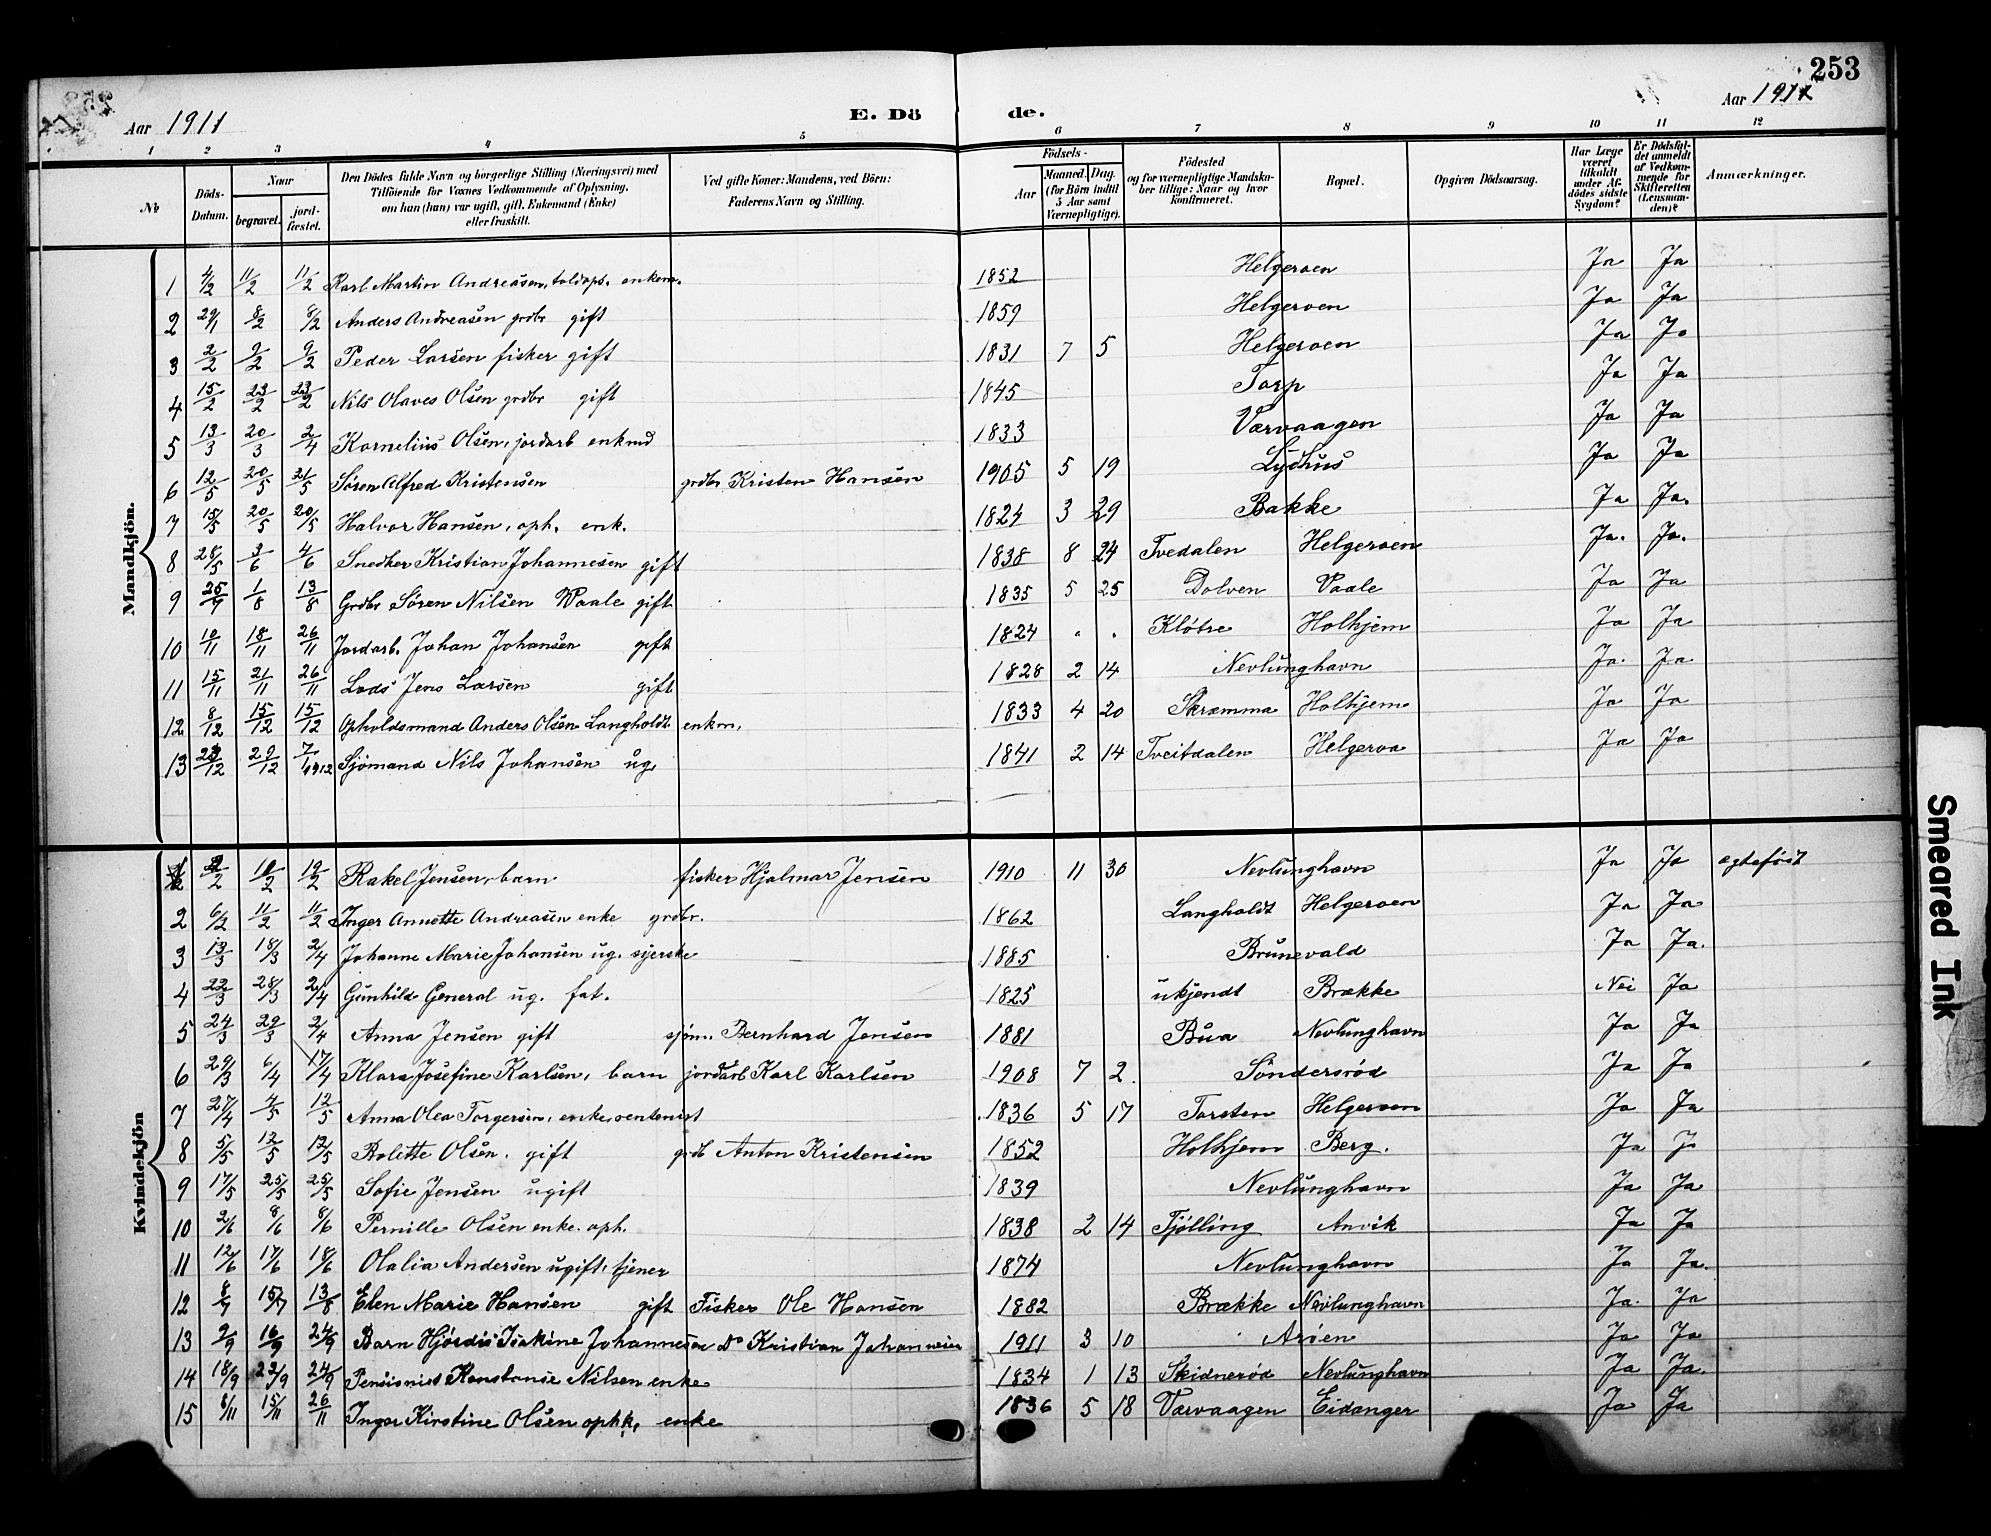 253
Aar 1911 E. Dö de. Aar 1911
1 2 3 4 5 6 7 8 9 10 11 12
№ Döds-Datum. Naar begravet. jordfæstet. Den Dödes fulde Navn og borgerlige Stilling (Næringsvei) med Tilföiende for Voxnes Vedkommende af Oplysning, om han (hun) var ugift, gift, Enkemand (Enke) eller fraskilt. Ved gifte Koner: Mandens, ved Börn: Faderens Navn og Stilling. Födsels- Aar Maaned. Dag. (for Börn indtil 5 Aar samt Værnepligtige). Födested og for værnepligtige Mandskaber tillige: Naar og hvor konfirmeret. Bopæl. Opgiven Dödsaarsag. Har Læge været tilkaldt under Afdödes sidste Sygdom? Er Dödsfaldet anmeldt af Vedkommende for Skifteretten (Lensmanden)? Anmærkninger.
Mandkjön.
1 4/2 11/2 11/2 Karl Martin Andreasen, toldops. enkem. 1852 Helgeroen Ja Ja
2 29/1 8/2 8/2 Anders Andreasen grdbr gift 1859 Helgeroen Ja Ja
3 2/2 9/2 9/2 Peder Larsen fisker gift 1831 7 5 Helgeroen Ja Ja
4 15/2 23/2 23/2 Nils Olaves Olsen grdbr gift 1845 Torp Ja Ja
5 13/3 20/3 2/4 Kornelius Olsen, jordarb enkmd 1833 Værvaagen Ja Ja
6 12/5 20/5 21/5 Søren Alfred Kristensen grdbr Kristen Hansen 1905 5 19 Lydhus Ja Ja
7 15/5 20/5 20/5 Halvor Hansen, oph. enk. 1824 3 29 Bakke Ja Ja.
8 28/5 3/6 4/6 Snedker Kristian Johannesen gift 1838 8 24 Tvedalen Helgeroen Ja. Ja.
9 25/7 1/8 13/8 Grdbr Søren Nilsen Vaale gift 1835 5 25 Dolven Vaale Ja Ja
10 10/11 18/11 26/11 Jordarb. Johan Johansen gift 1824 " " Kløtre Holhjem Ja Ja
11 15/11 21/11 26/11 Lods Jens Larsen gift 1828 2 14 Nevlunghavn Ja. Ja.
12 8/12 15/12 15/12 Opholdsmand Anders Olsen Langholdt enkm. 1833 4 20 Skræmma Holhjem Ja Ja
13 /12 29/12 7/1 1912 Sjömand Nils Johansen ug. 1841 2 14 Tveitdalen Helgeroa Ja Ja
Kvindekjön
1 /2 /2 19/2 Rakel Jensen, barn fisker Hjalmar Jensen 1910 11 30 Nevlunghavn Ja Ja ægteføst
2 6/2 11/2 11/2 Inger Annette Andreasen enke grdbr. 1862 Langholdt Helgeroen Ja Ja
3 13/3 18/3 2/4 Johanne Marie Johansen ug. syerske 1885 Brunevald Ja Ja.
4 22/3 28/3 2/4 Gunhild General ug. fat. 1825 ukjendt Brække Nei Ja
5 24/3 29/3 2/4 Anna Jensen gift sjøm. Bernhard Jensen 1881 Bua Nevlunghavn Ja Ja
6 29/3 6/4 17/4 Klara Josefine Karlsen, barn jordarb Karl Karlsen 1908 7 2. Söndersröd Ja Ja
7 27/4 4/5 12/5 Anna Olea Torgersen, enke, rentenist 1836 5 17 Torsten Helgeroen Ja Ja
8 5/5 12/5 12/5 Bolette Olsen. gift grdb Anton Kristensen 1852 Holhjem Berg. Ja Ja
9 17/5 25/5 25/5 Sofie Jensen ugift 1839 Nevlunghavn Ja Ja
10 2/6 8/6 8/6 Pernille Olsen enke. oph. 1838 2 14 Tjølling Anvik Ja Ja
11 12/6 17/6 18/6 Olalia Andersen ugift, tjener 1874 Nevlunghavn Ja Ja.
12 8/7 15/7 13/8 Elen Marie Hansen gift Fisker Ole Hansen 1882 Brække Nevlunghavn Ja. Ja
13 9/9 16/9 24/9 Barn Hjørdis Isakine Johannesen Do Kristian Johannesen 1911 3 10 Arøen Ja Ja
14 18/9 23/9 24/9 Pensionist Konstanse Nilsen enke 1834 1 13 Skidnerød Nevlunghavn Ja Ja.
15 8/11 15/11 26/11 Inger Kirstine Olsen ophk, enke 1836 5 18 Værvaagen Eidanger Ja Ja
Smeared Ink